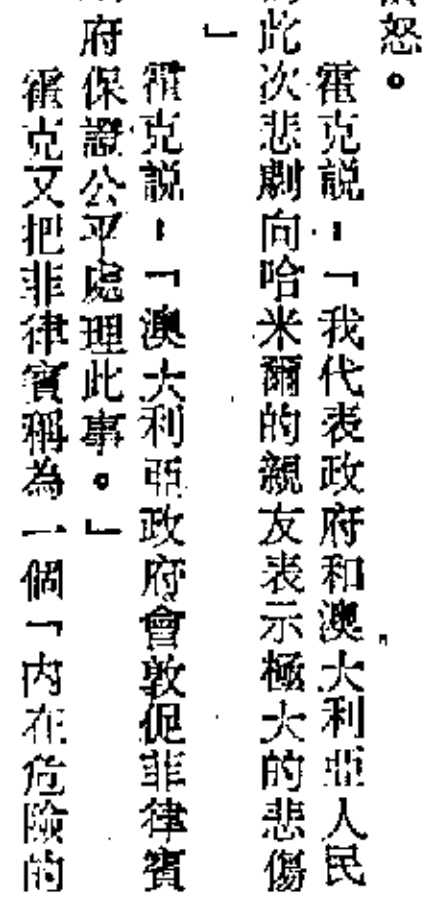 怒。
霍克説:「我代表政府和澳大利亞人民
此次悲劇向哈米爾的親友表示極大的悲傷
」
霍克説:「澳大利亞政府會敦促菲律賓
府保證公平處理此事。」
霍克又把菲律賓稱為一個「内在危險的